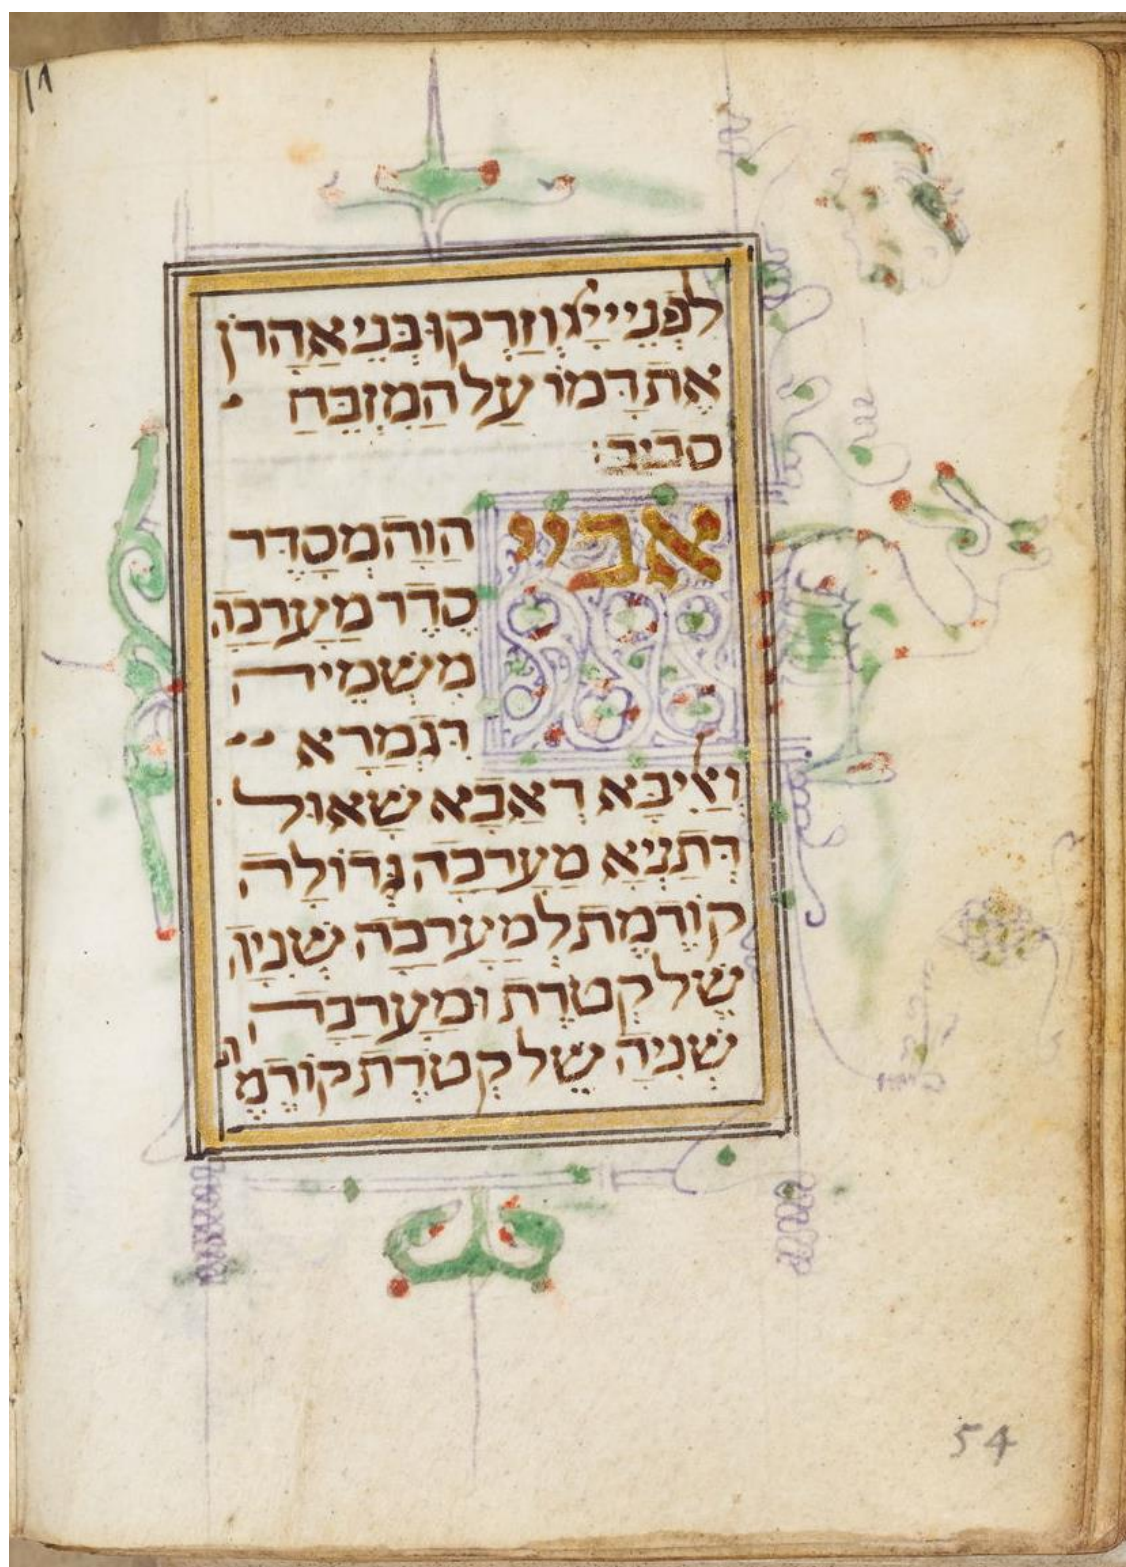 לִפְנֵי יְיָ וְזָרְקוּ בְּנֵי אַהֲרֹן
אֶת דָּמוֹ עַל הַמִּזְבֵּחַ
סָבִיב:
אביי הֲוָה מְסַדֵּר
סֵדֶר מַעֲרָכָה
מִשְּׁמֵיהּ
דִּגְמָרָא
וְאַלִּיבָּא דְאַבָּא שָׁאוּל
דְּתַנְיָא מַעֲרָכָה גְּדוֹלָה
קוֹדֶמֶת לְמַעֲרָכָה שְׁנִיָּה
שֶׁל קְטֹרֶת וּמַעֲרָכָה
שְׁנִיָּה שֶׁל קְטֹרֶת קוֹדֶמֶת
54